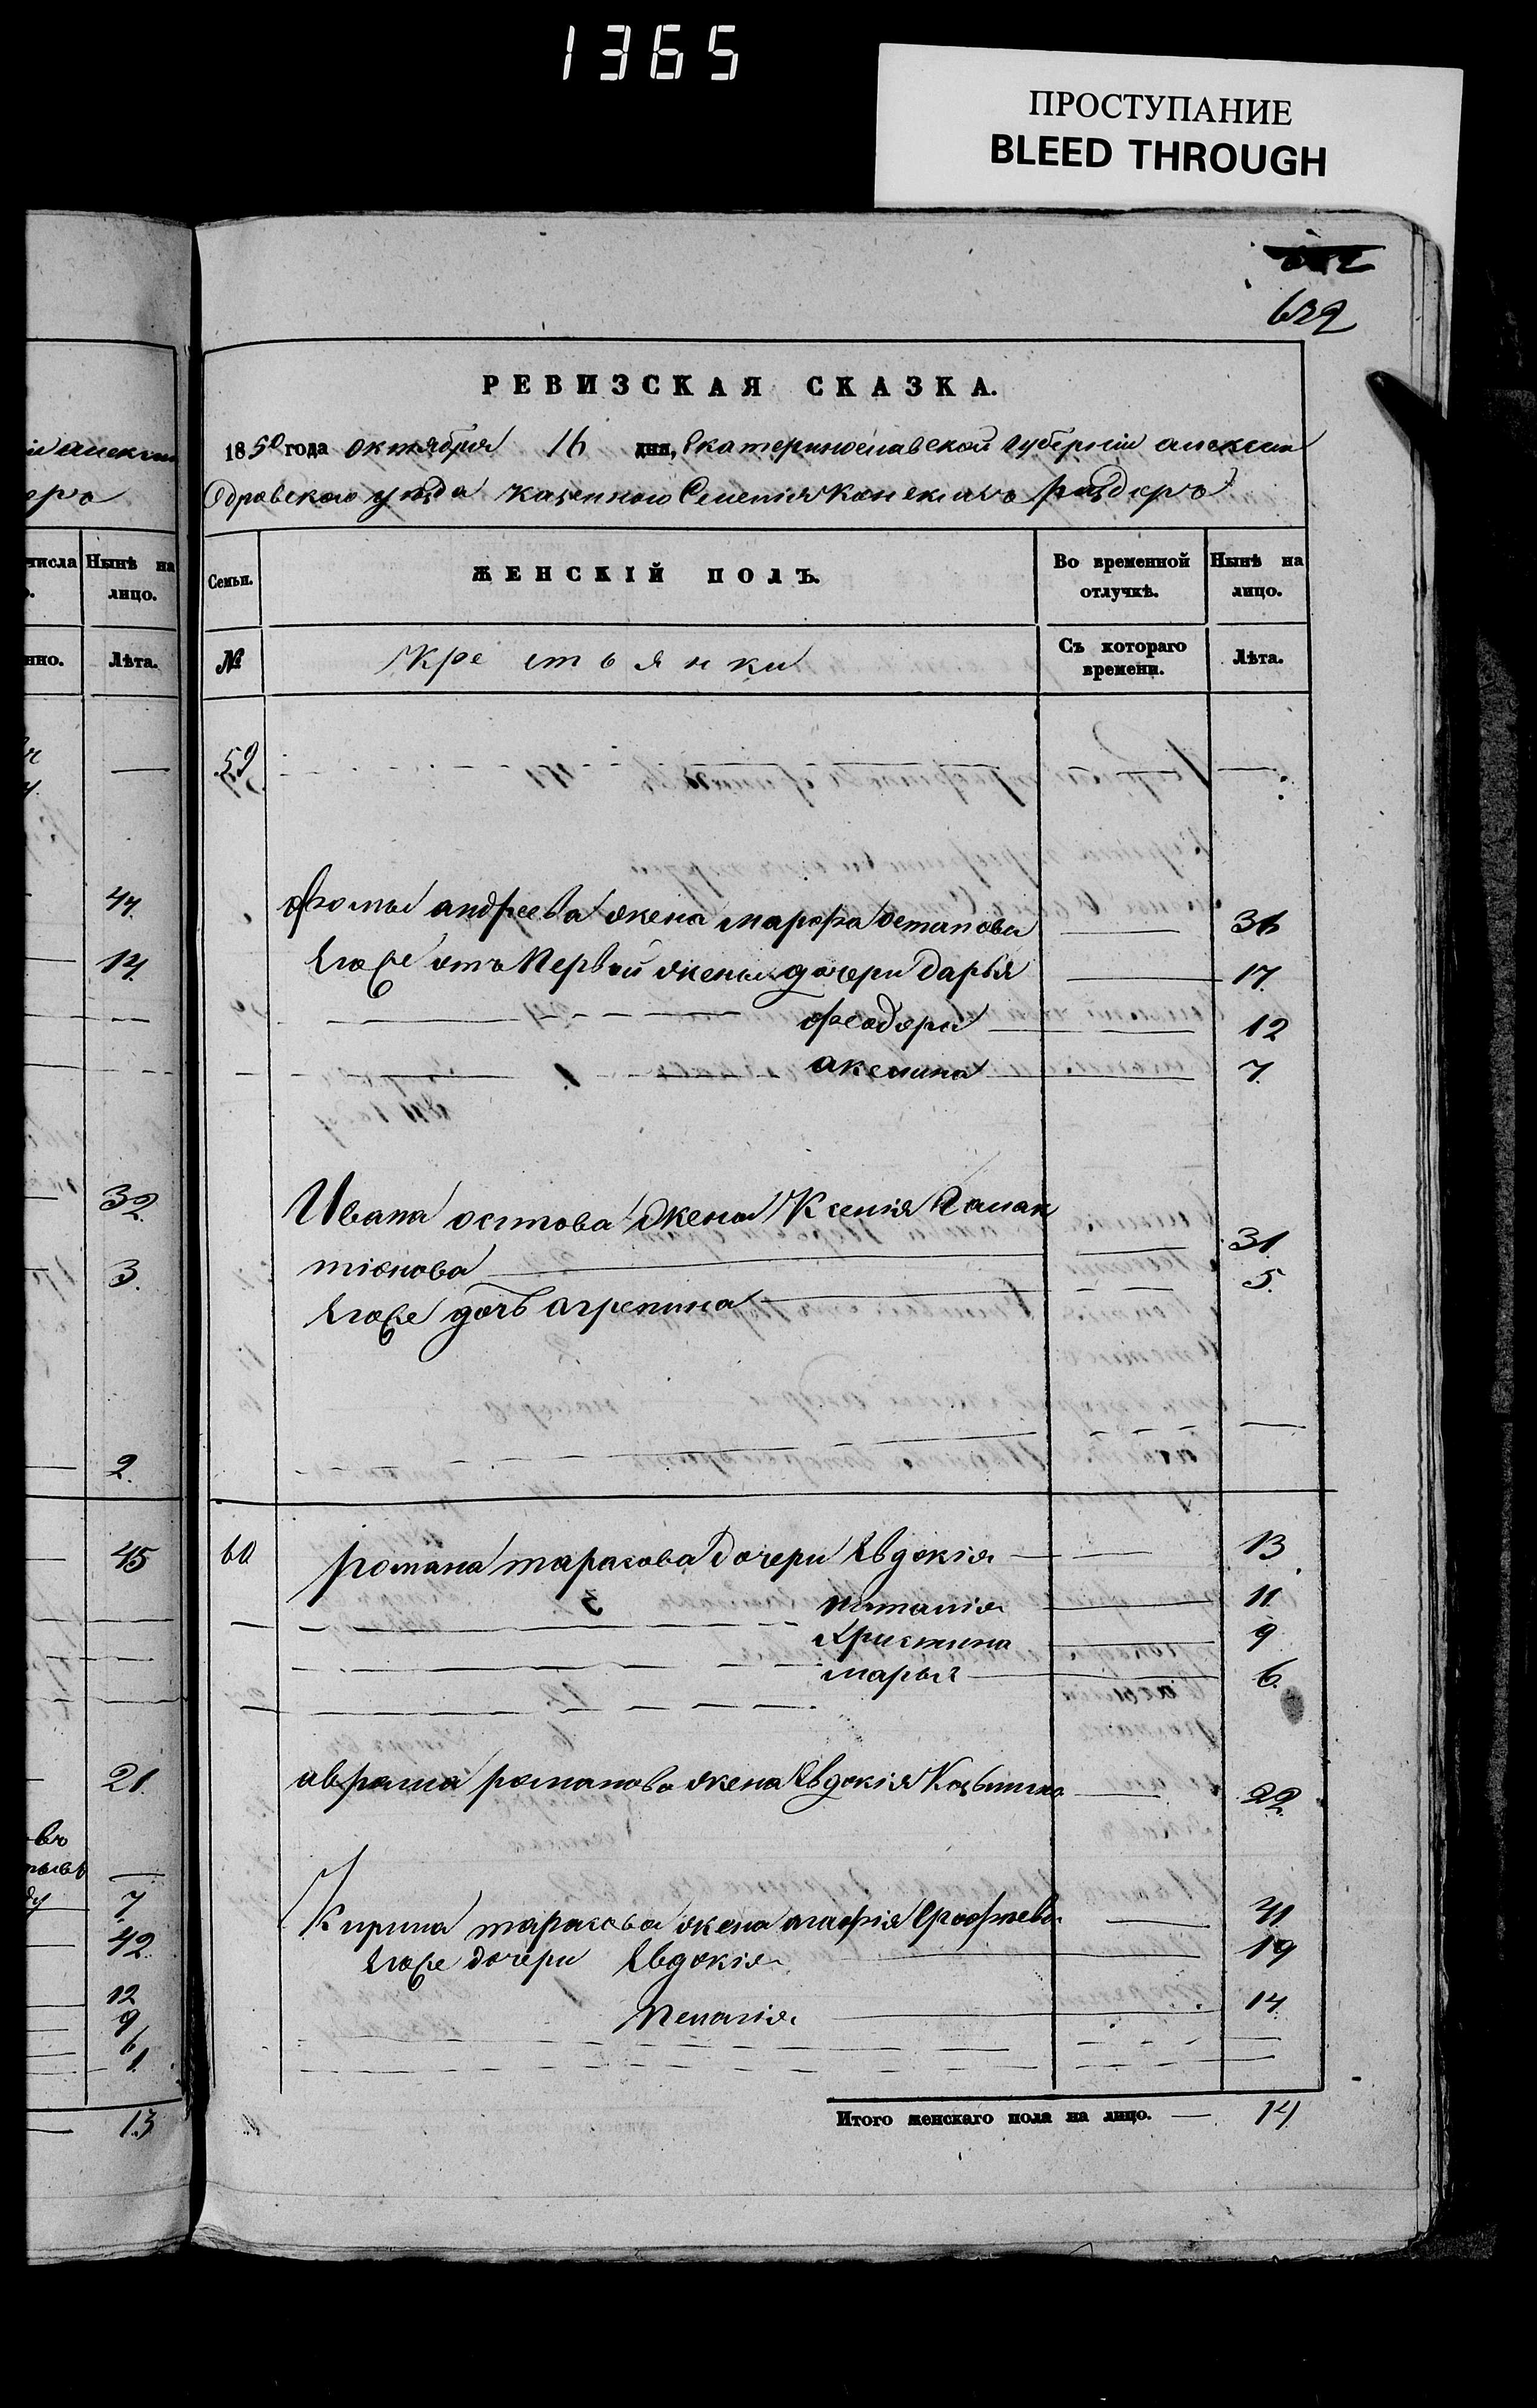 1365
ПРОСТУПАНИЕ
BLEED THROUGH
632
РЕВИЗСКАЯ СКАЗКА.
1850 года октября 16 дня, Екатеринославской губерніи алексан
дровского уѣзда казенного Селенія Конскихъ Раздоръ
Семьи.
ЖЕНСКІЙ ПОЛЪ.
Во временной отлучкѣ.
Нынѣ на лицо.
№
Крестьянки
Съ котораго времени.
Лѣта.
59
Фомы андреева жена марфа остапова 36
Егоже отъ Первой жены дочери дарья 17
феодора 12
акелина 7.
Ивана осипова жена Ксенія Галак
тіонова 31.
Егоже дочь агрепина 5.
60 романа тарасова дочери Евдокія 13
наталія 11
Христина 9
марья 6.
аврама романова жена Евдокія Козьмина 22.
Кирила тарасова жена агафія 41
Егоже дочери Евдокія 19
Пелагія 14.
Итого женскаго пола на лицо. — 14
числа
Нынѣ на
лицо.
Лѣта.
44.
14.
32.
3.
2.
45
21.
въ
7
42
12
9
6
1.
13